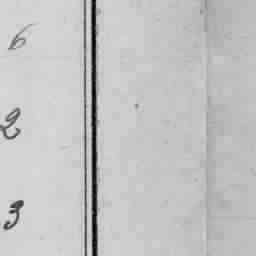 6
2
3